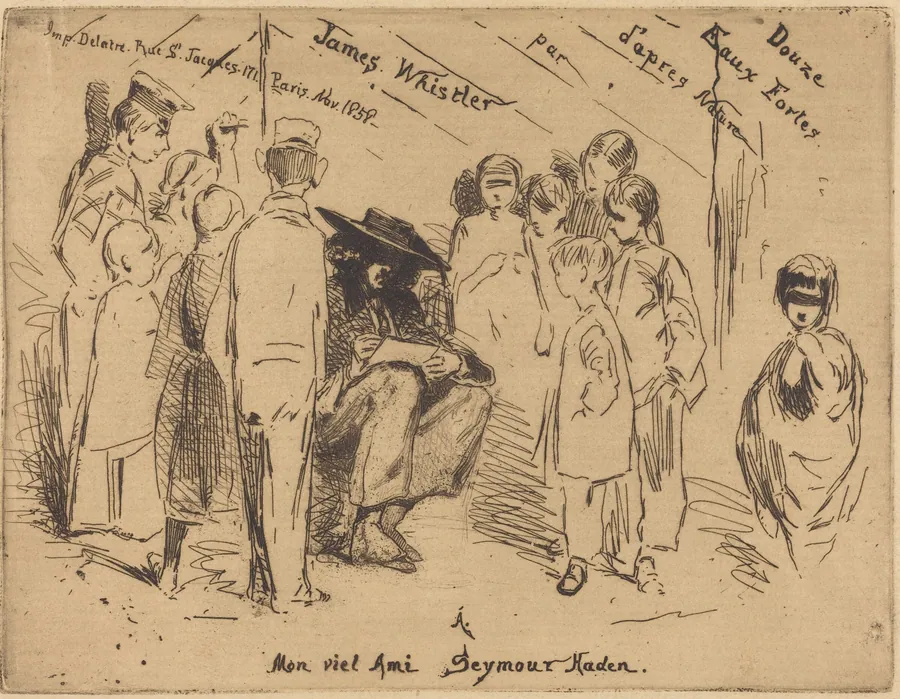 Douze
Eaux Fortes
d'apres Nature
par
James. Whistler
Imp. Delatre. Rue St. Jacques. 171.
Paris. Nov. 1858.
Á.
Mon viel Ami Seymour Haden.